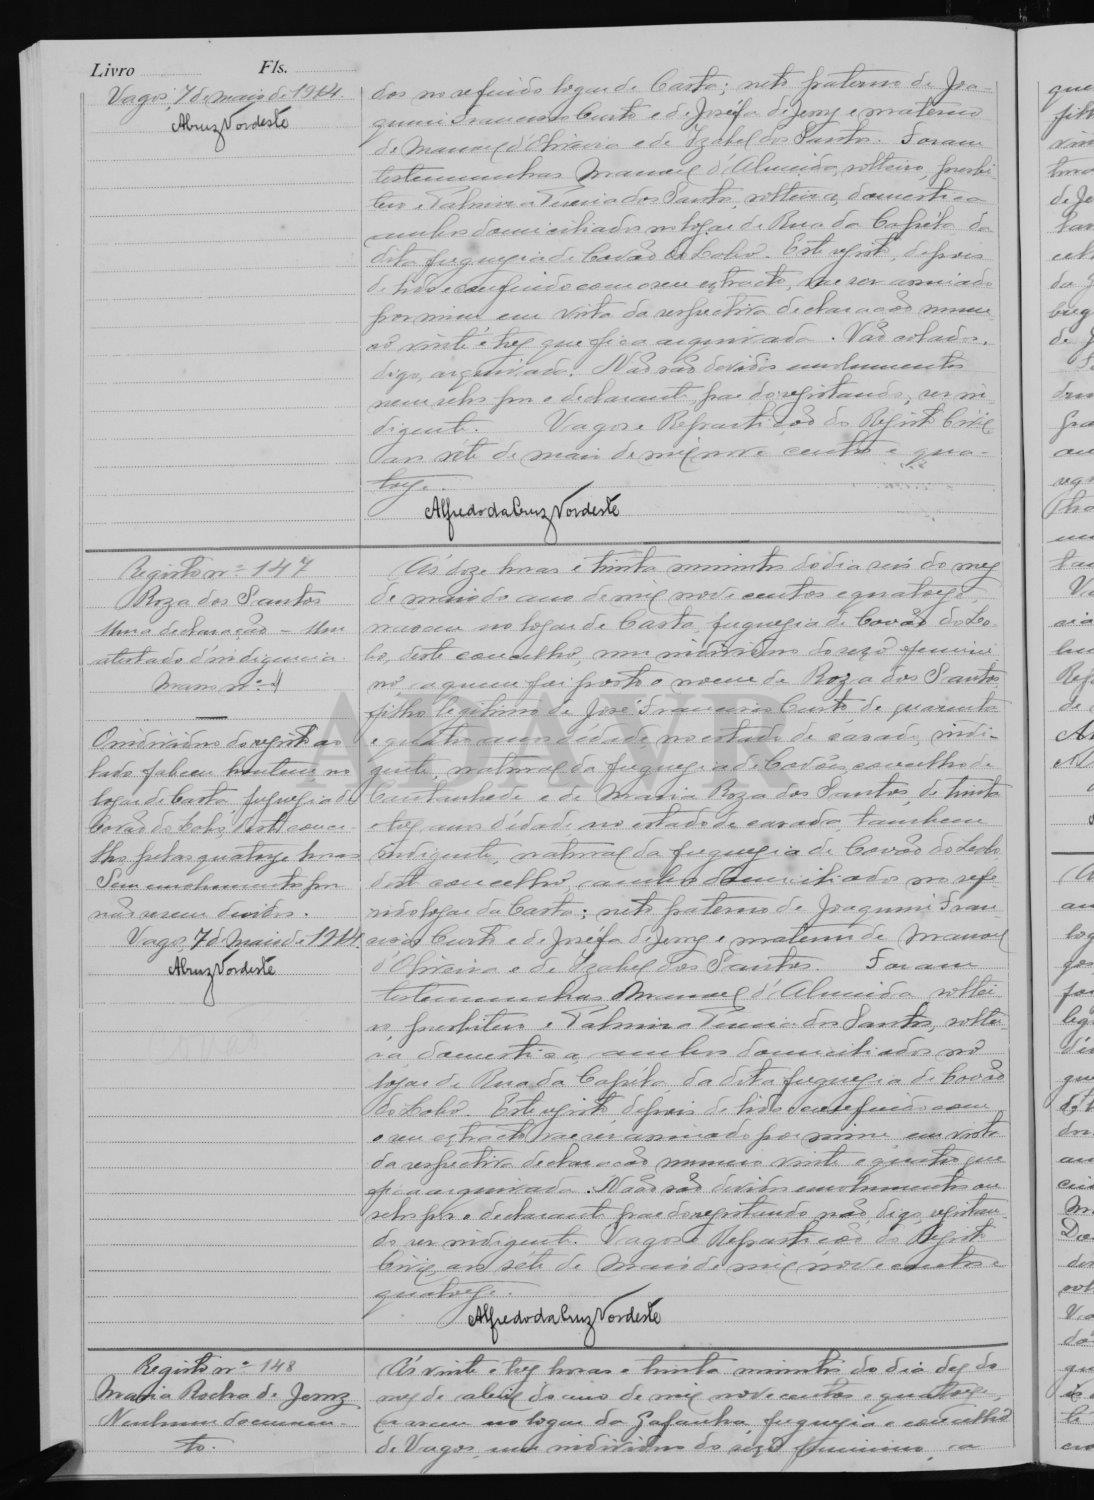 Livro Fls.
Vagos, 7 de maio de 1914.
ACruz Nordeste
dos no referido logar de Casta; neto paterno de Joa-
quim Francisco Curto e de Josefa de Jesus e materno
de Manoel d'Oliveira e de Izabel dos Santos. Foram
testemunhas Manoel d'Almeida, solteiro, presbi-
tero e Palmira Tereza dos Santos, solteira, domestica
ambos domiciliados no logar de Rua da Capéla da
dita freguezia de Covão do Lobo. Este registo, depois
de lido e conferido com o seu extracto, vae ser assinado
por mim em vista da respectiva declaração nume-
ro vinte e tres que fica arquivada. Vão selados,
digo, arquivada. Não são devidos emolumentos
nem selos por o declarante, pae do registando, ser in-
digente. Vagos e Repartição do Registo Civil
aos séte de maio de mil nove centos e qua-
torze.
Alfredo da Cruz Nordeste
Registo nº 147
Roza dos Santos
Uma declaração - Um
atestado d'indigencia
Maço nº 4
O individuo do registo ao
lado faleceu hontem no
logar de Casta, freguezia de
Covão do Lobo, deste conce-
lho pelas quatorze horas
Sem emolumentos por
não serem devidos.
Vagos, 7 de Maio de 1914
ACruz Nordeste
Ás doze horas e trinta minutos do dia seis do mez
de maio do ano de mil nove centos e quatorze
nasceu no logar de Casta, freguezia de Covão do Lo-
bo, deste concelho, um individuo do sexo femini-
no a quem foi posto o nome de Roza dos Santos,
filho legitimo de José Francisco Curto de quarenta
e quatro anos d'idade no estado de casado, indi-
gente, natural da freguezia de Covões, concelho de
Cantanhede e de Maria Roza dos Santos, de trinta
e tres anos d'idade no estado de casada, tambem
indigente, natural da freguezia de Covão do Lobo
deste concelho, ambos domiciliados no refe-
rido logar da Casta; neto paterno de Joaquim Fran-
cisco Curto e de Josefa de Jesus e materno de Manoel
d'Oliveira e de Izabel dos Santos. Foram
testemunhas Manoel d'Almeida soltei-
ro presbitero e Palmira Tereza dos Santos, soltei-
ra domestica, ambos domiciliados no
logar de Rua da Capéla da dita freguezia de Covão
do Lobo. Este registo depois de lido e conferido com
o seu extracto vae ser assinado por mim em vista
da respectiva declaração numero vinte e quatro que
fica arquivada. Não são devidos emolumentos ou
selos por o declarante pae do registando não, digo, registan-
do ser indigente. Vagos e Repartição do Registo
Civil aos séte de Maio de mil nove centos e
quatorze.
Alfredo da Cruz Nordeste
Registo nº 148
Maria Rocha de Jesus
Nenhum documen-
to.
Ás vinte e tres horas e trinta minutos do dia dez do
mez de abril do ano de mil nove centos e quatorze,
nasceu no logar da Gafanha, freguezia e concelho
de Vagos, um individuo do sexo feminino, a
ADAVR